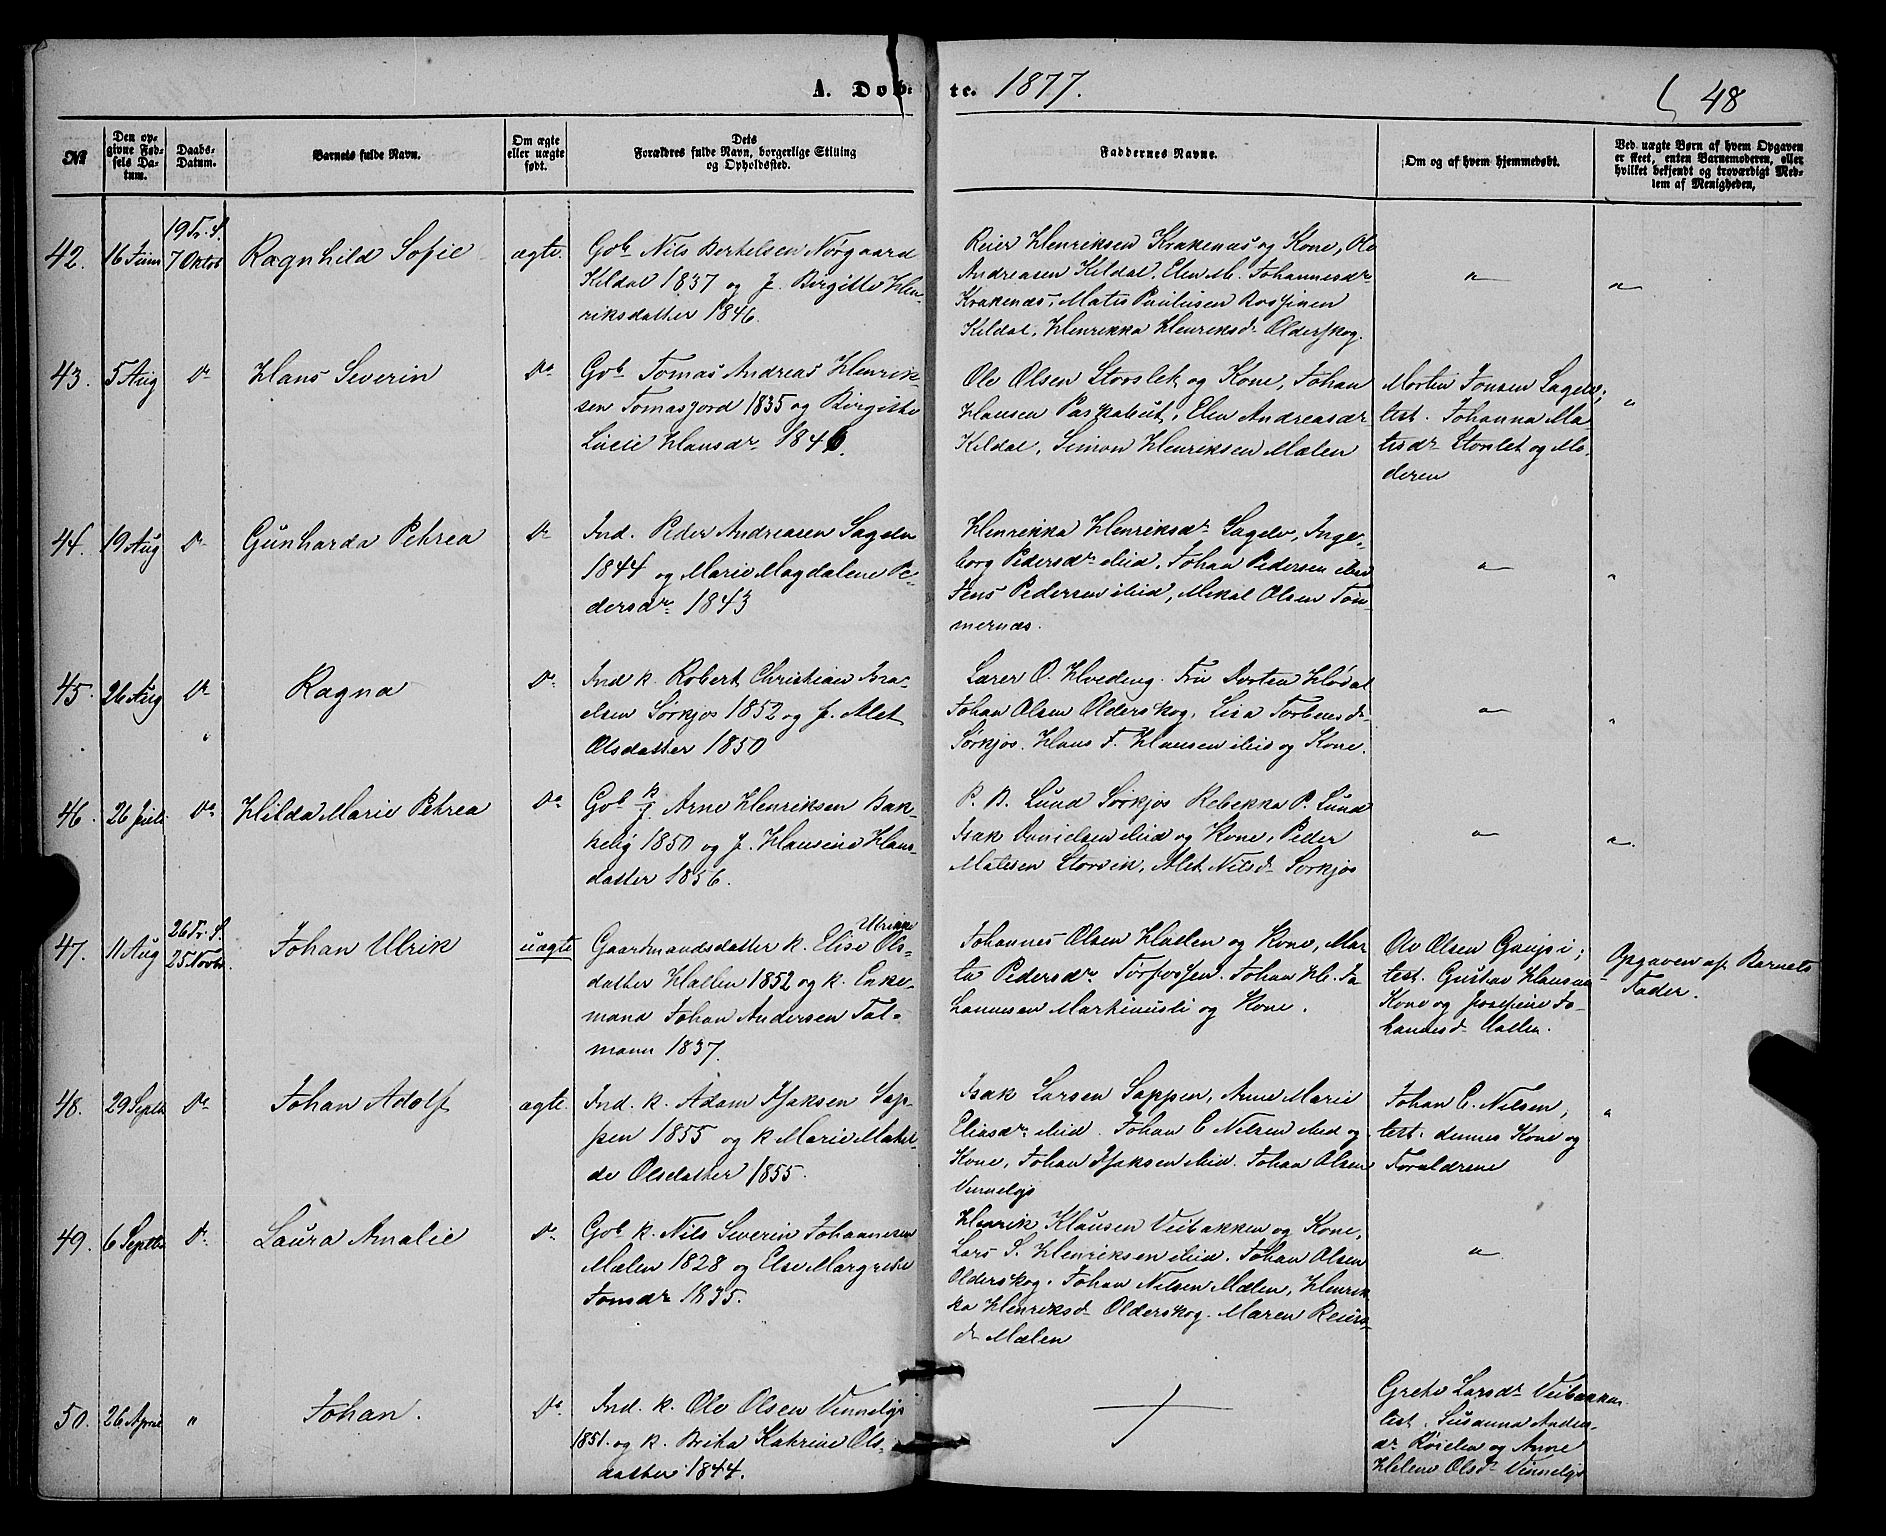 A. Døb-te. 1877.
48
№
Den op-
givne Fød-
sels Da-
tum.
Daabs-
Datum.
Barnets fulde Navn.
Om ægte
eller uægte
født.
Dets
Forældres fulde Navn, borgerlige Stilling
og Opholdssted.
Faddernes Navne.
Om og af hvem hjemmedøbt.
Ved uægte Børn af hvem Opgaven
er skeet, enten Barnemoderen, eller
hvilket bekjendt og troværdigt Med-
lem af Menigheden.
42.
16 Juni
19 Tr. S.
7 Oktob
Ragnhild Sofie
ægte.
Gbb Nils Bertelsen Nörgaard
Kildal 1837 og J. Birgitte Hen-
riksdatter 1846.
Reier Henriksen Krakenæs og Kone, Ole
Andreasen Kildal, Elen M. Johannesdr
Krakenæs, Matis Paulusen Bossinen
Kildal, Henrikka Henriksdr Olderskog.
"
"
43.
5 Aug
Do
Hans Severin
Do
Gbb Tomas Andreas Henrik-
sen Tomasjord 1835 og Birgitte
Lucie Hansdr 1846.
Ole Olsen Storslet og Kone, Johan
Hansen Paskabut, Elen Andreasdr
Kildal, Simon Henriksen Mælen
Morten Jonsen Sagelv;
test. Johanna Ma-
tisdr Storslet og Mo-
deren
"
44.
19 Aug
Do
Gunharda Petrea
Do
Ind. Peder Andreasen Sagelv
1844 og Marie Magdalene Pe-
dersdr 1843
Henrikka Henriksdr Sagelv, Inge-
borg Pedersdr ibid, Johan Pedersen ibid
Jens Pedersen ibid, Mikal Olsen Töm-
mernæs.
"
"
45.
26 Aug
Do
Ragna
Do
Ind k. Robert Christian Isra-
elsen Sörkjos 1852 og J. Alet
Olsdatter 1850
Lærer O. Hveding. Fru Dorten Hödal
Johan Olsen Olderskog, Lisa Torbensdr
Sörkjos. Hans J. Hansen ibid og Kone.
"
"
46.
26 Juli
Do
Hilda Marie Petrea
Do
Gbb k Arne Henriksen Bak-
kelig 1850 og J. Hansine Hans-
datter 1856.
P. B. Lund Sörkjos Rebekka P. Lund
Isak Danielsen ibid og Kone, Peder
Matesen Storvik, Alet Nilsdr Sorkjos
"
"
47.
11 Aug
26 Tr. S.
25 Novbr.
Johan Ulrik
uægte
Gaardmandsdatter k. Elise Ulrikke Ols-
datter Hallen 1852 og k. Enke-
mand Johan Andersen Tal-
mann 1837.
Johannes Olsen Hallen og Kone, Mar-
ta Pedersdr Torfossen. Johan Hb. Jo-
hannesen Markinusli og Kone.
Ole Olsen Gaupsi;
test. Gustav Hansens
Kone og Josefine Jo-
hannesdr Hallen.
Opgaven af Barnets
Fader.
48.
29 Septb
Do
Johan Adolf
ægte.
Ind. k. Adam Isaksen Sap-
pen 1855 og k Marie Mathil-
de Olsdatter 1855.
Isak Larsen Sappen, Anne Marie
Eliasdr ibid. Johan C Nilsen ibid og
Kone, Johan Isaksen ibid. Johan Olsen
Vinnelys
Johan C. Nilsen,
test. dennes Kone og
Forældrene
"
49.
6 Septbr
Do
Laura Amalie
Do
Gbb k. Nils Severin Johannesen
Mælen 1828 og Else Margrethe
Tomsdr 1835.
Henrik Klausen Veibakken og Kone,
Lars S. Henriksen ibid. Johan Olsen
Olderskog. Johan Nilsen Mælen, Henrik-
ka Henriksdr Olderskog. Maren Reiers-
dr Mælen
"
50.
26 April
"
Johan.
Do
Ind. k. Ole Olsen Vinnelys
1851. og k. Brita Katrine Ols-
datter 1844.
Grete Larsdr Veibakken
test. Susanna Anders-
dr Röielen og Anne
Helene Olsdr Vinnelys